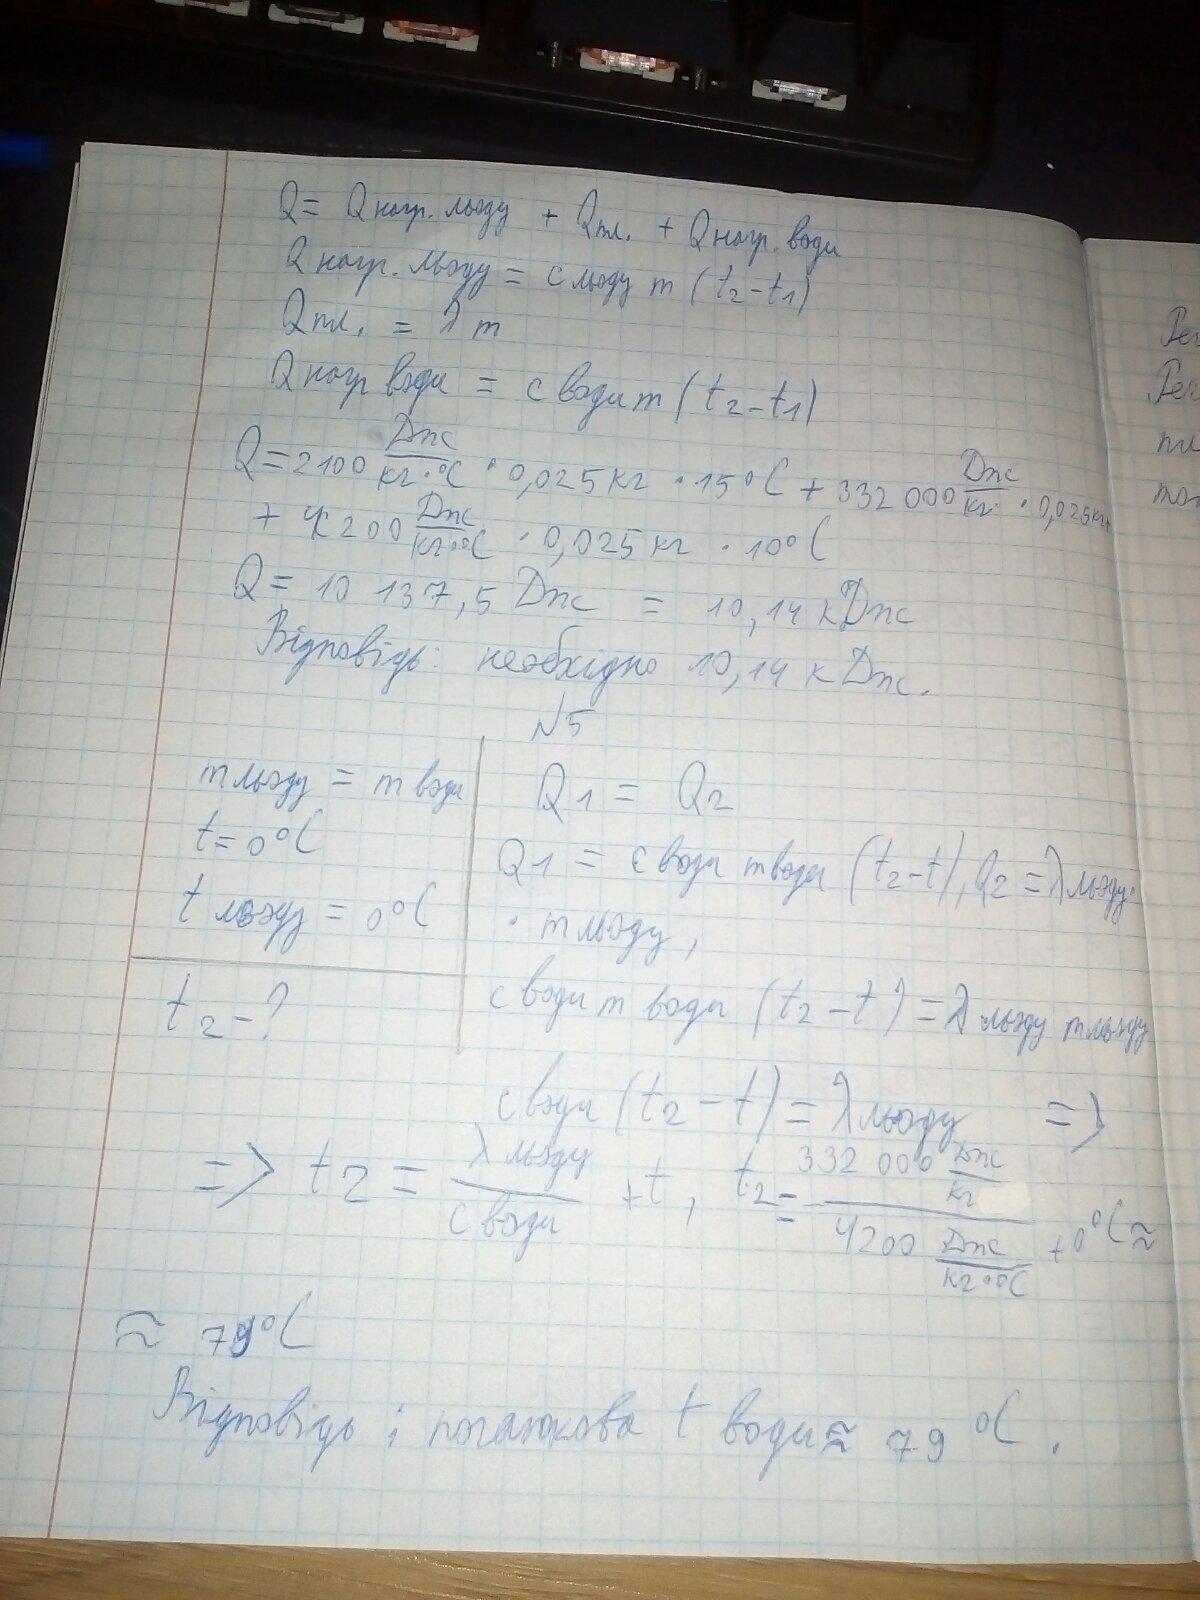 Q = Q нагр. льоду + Q пл. + Q нагр. води
Q нагр. льоду = c льоду m (t2-t1)
Q пл. = λ m
Q нагр води = c води m (t2-t1)
Q = 2100 Дж/кг·°C · 0,025 кг · 15°C + 332 000 Дж/кг · 0,025 кг +
+ 4200 Дж/кг·°C · 0,025 кг · 10°C
Q = 10 137,5 Дж = 10,14 кДж
Відповідь: необхідно 10,14 кДж.
№5
m льоду = m води
t = 0°C
t льоду = 0°C
t2 - ?
Q1 = Q2
Q1 = c води m води (t2-t), Q2 = λ льоду ·
· m льоду,
c води m води (t2-t) = λ льоду m льоду
c води (t2-t) = λ льоду =>
=> t2 = λ льоду / c води + t, t2 = 332 000 Дж/кг / 4200 Дж/кг·°C + 0°C ≈
≈ 79°C
Відповідь: початкова t води ≈ 79 °C.